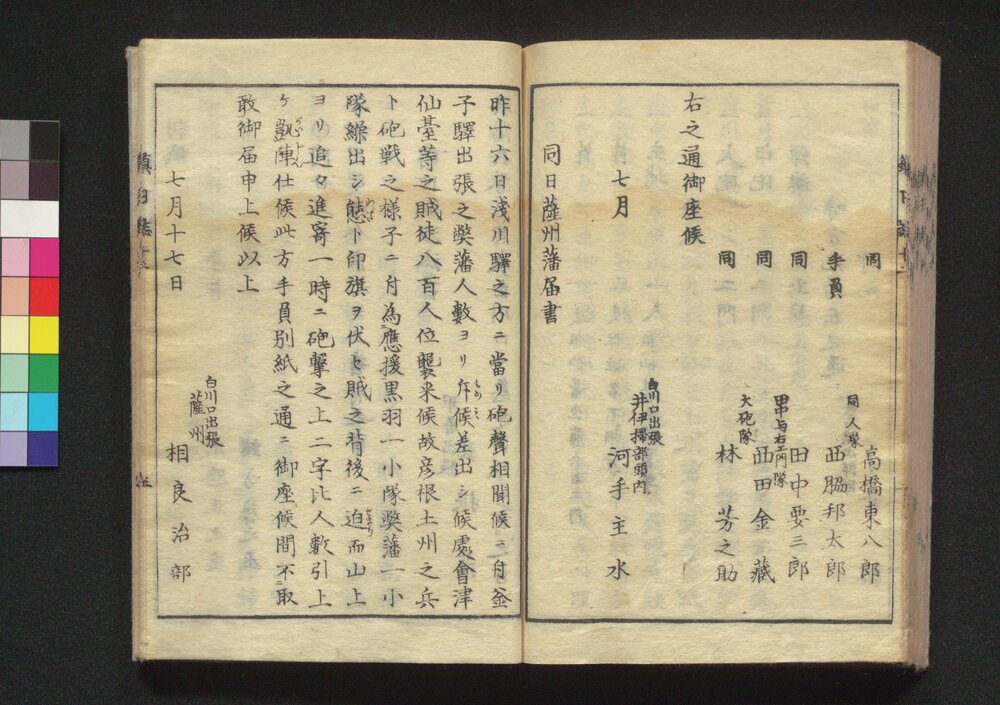 同 高橋東八郎
同人隊
手負 西脇邦太郎
同 田中要三郎
甲中与右エ門隊
同 西田金藏
大砲隊
同 林芳之助
右之通御座候
白川口出張
井伊掃部頭内
七月 河手主水
同日薩州藩届書
昨十六日淺川驛之方ニ當リ砲聲相聞候ニ付釜
子驛出張之弊藩人數ヨリ斥候差出シ候處會津
仙臺等之賊徒八百人位襲来候故彦根土州之兵
ト砲戦之様子ニ付為應援黒羽一小隊弊藩一小
隊繰出シ態ト印旗ヲ伏セ賊之背後ニ迫而山上
ヨリ追々進寄一時ニ砲撃之上二字比人數引上
ケ凱陣仕候此方手負別紙之通ニ御座候間不取
敢御届申上候以上
白川口出張
薩州
七月十七日 相良治部
鎮日誌